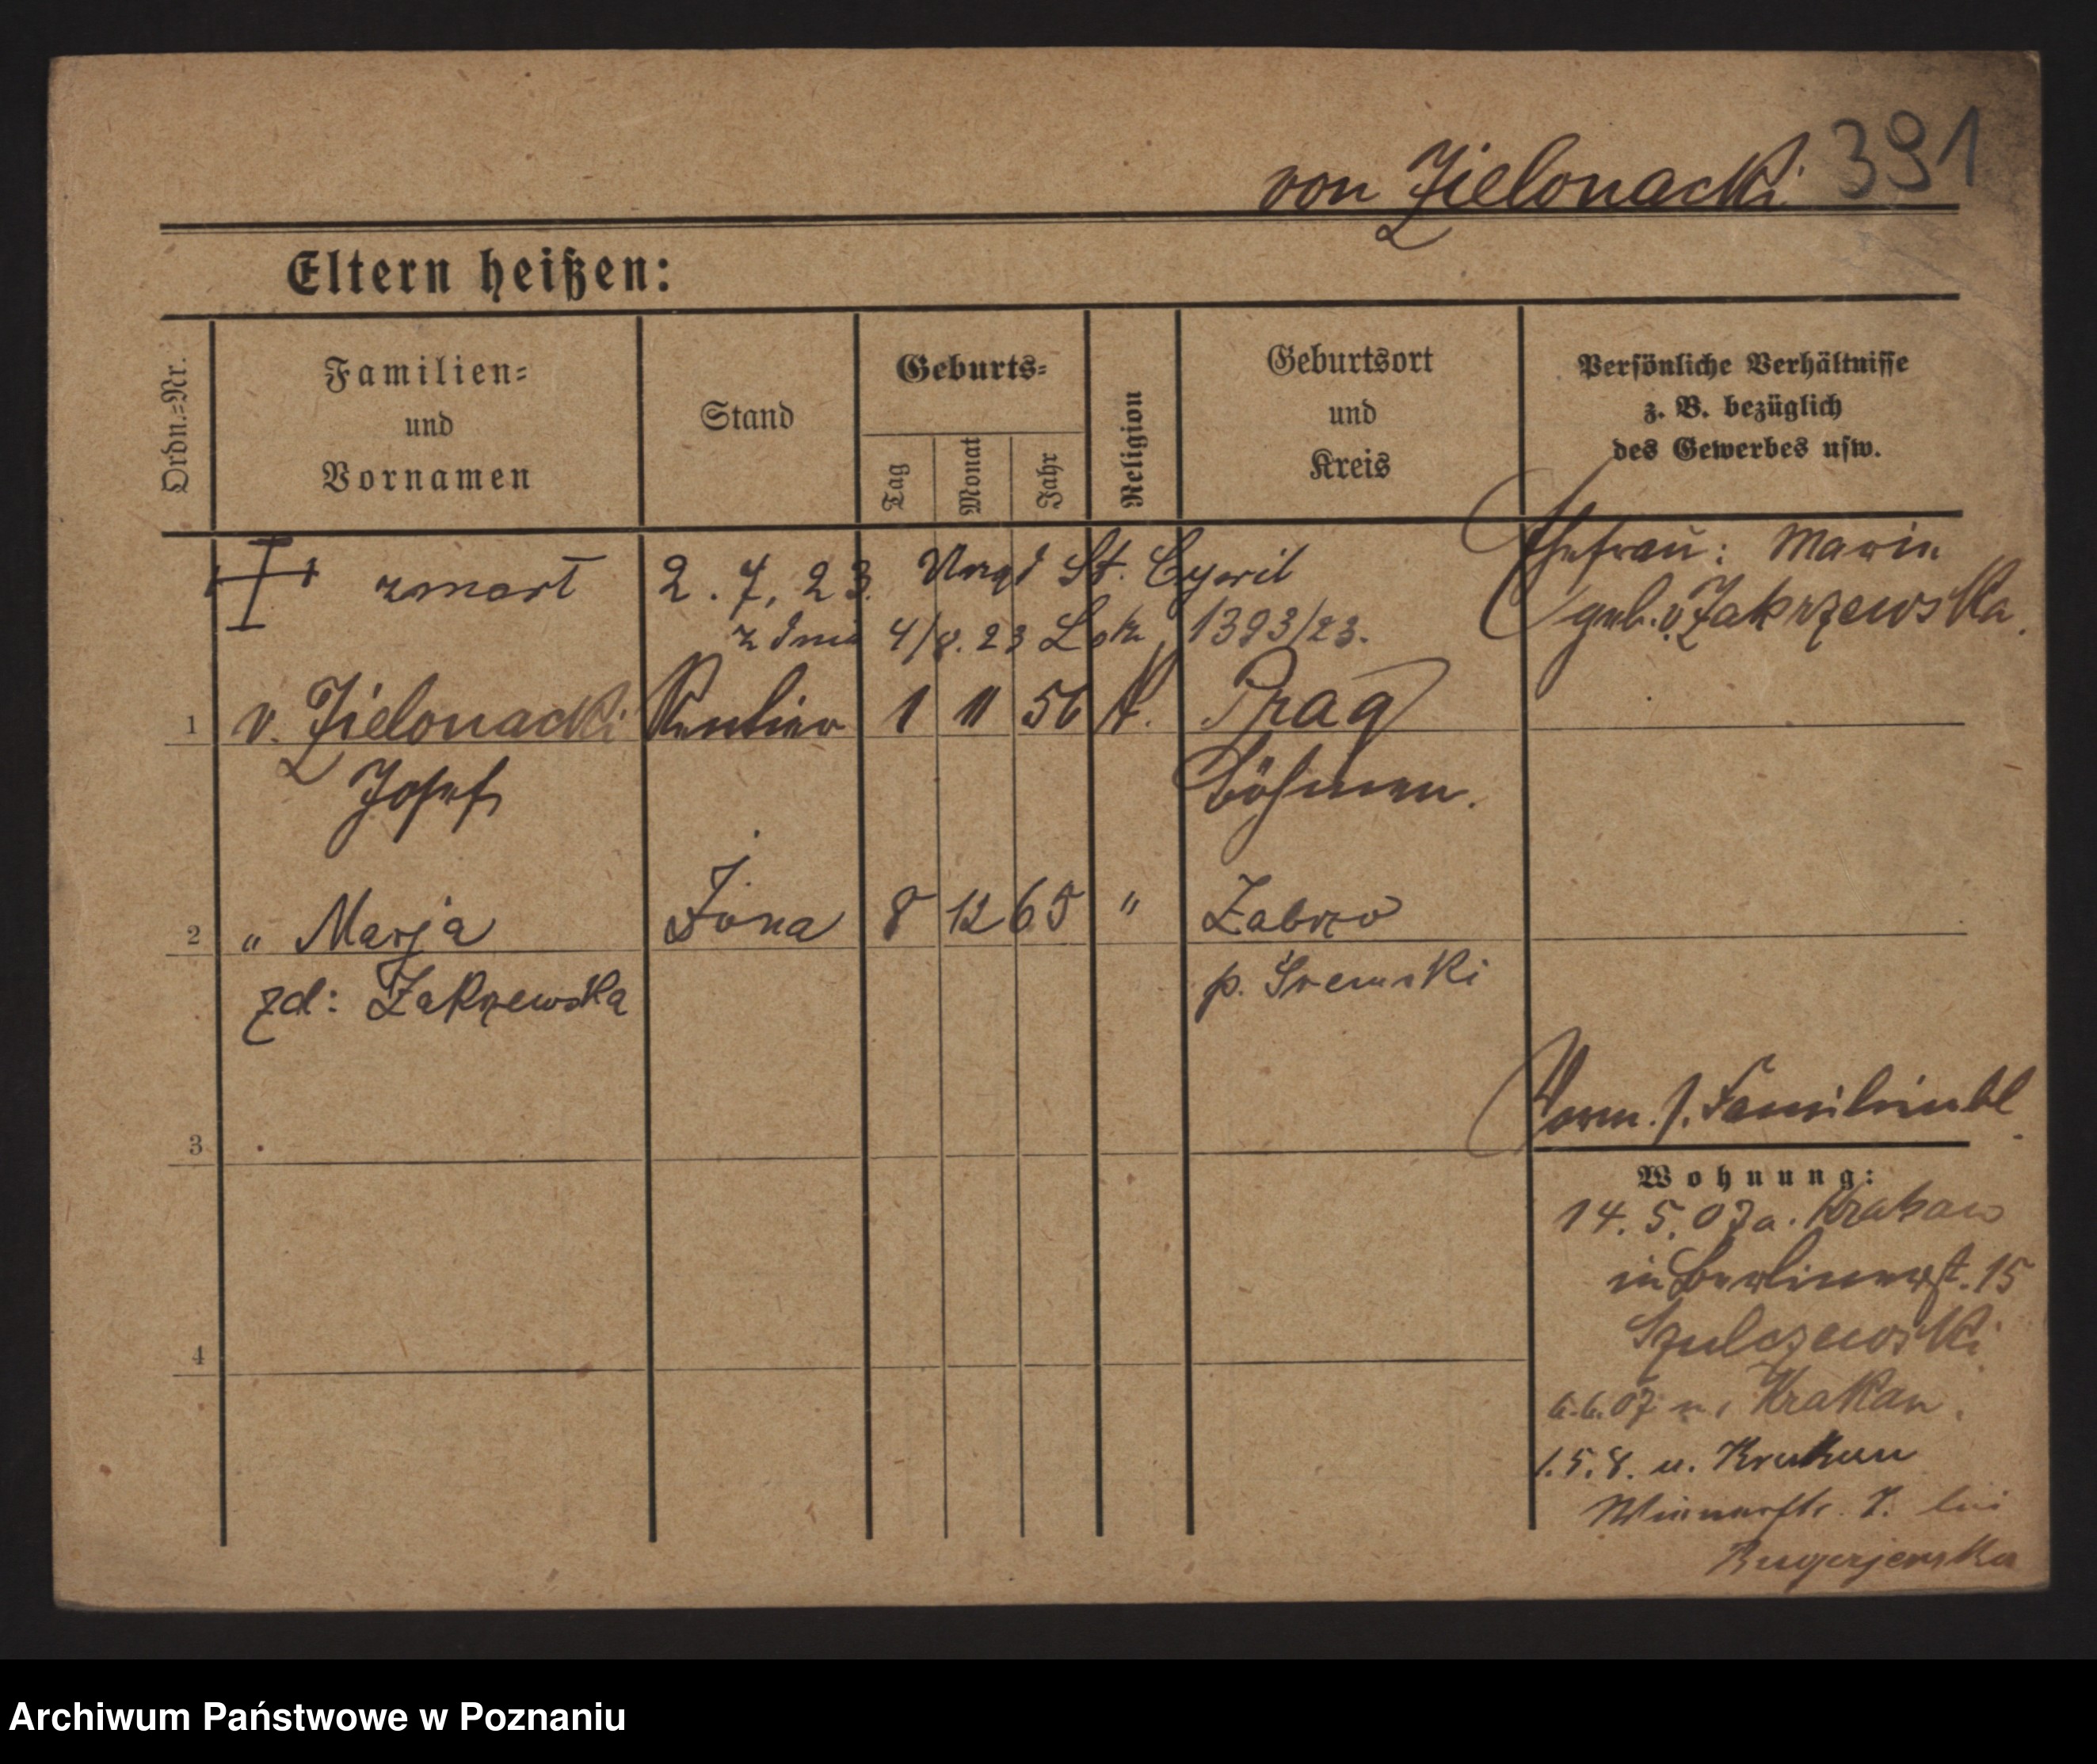 von Zielonacki 391
Eltern heißen:
Ordn.-Nr.
Familien-
und
Vornamen
Stand
Geburts-
Tag
Monat
Jahr
Religion
Geburtsort
und
Kreis
Persönliche Verhältnisse
z. B. bezüglich
des Gewerbes usw.
zmarł 2. 7. 23. Urząd St. Cywil
z dnia 4/8. 23 L 1393/23.
Ehefrau: Maria
geb. v. Zakrzewska.
1 v. Zielonacki Rentier 1 11 56 k. Prag
Josef Böhmen.
2 " Marja Żona 8 12 65 " Żabno
zd: Zakrzewska p. Śremski
3
4
Verm. s. Familienbl.
Wohnung:
14. 5. 07 a. Krakau
in Berlinerst. 15
Szulczewski
6.6.07 n. Krakau.
1.5.8. u. Krakau
Wienerstr. 7. bei